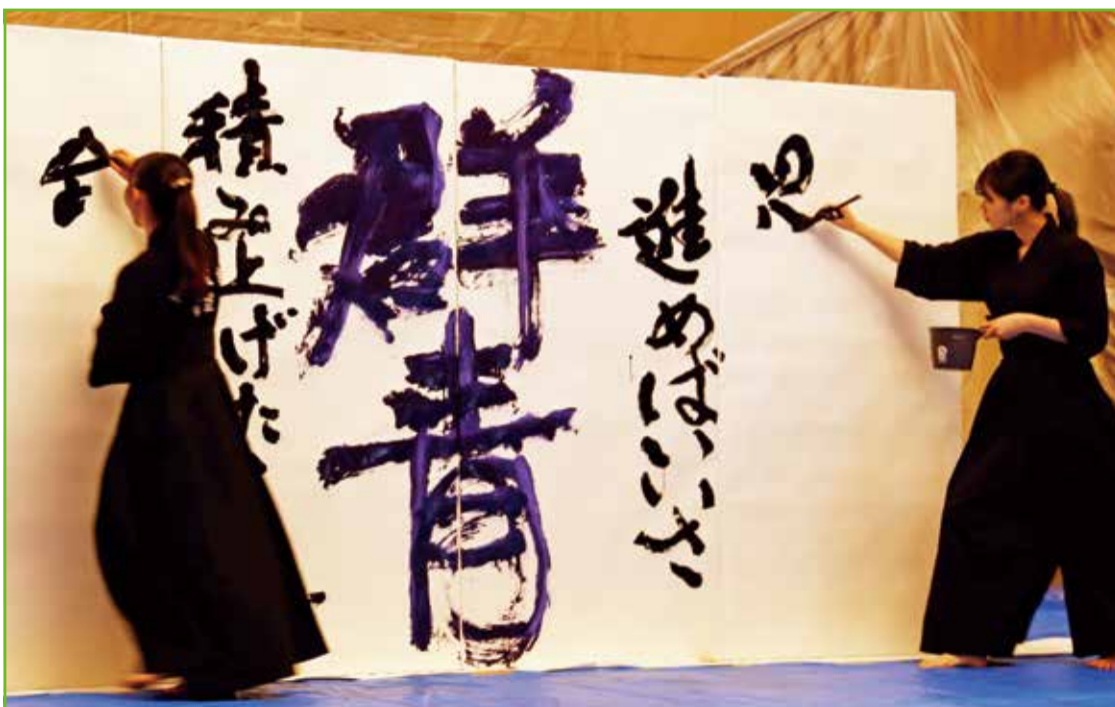 思
進めばいいさ
群青
積み上げた
全